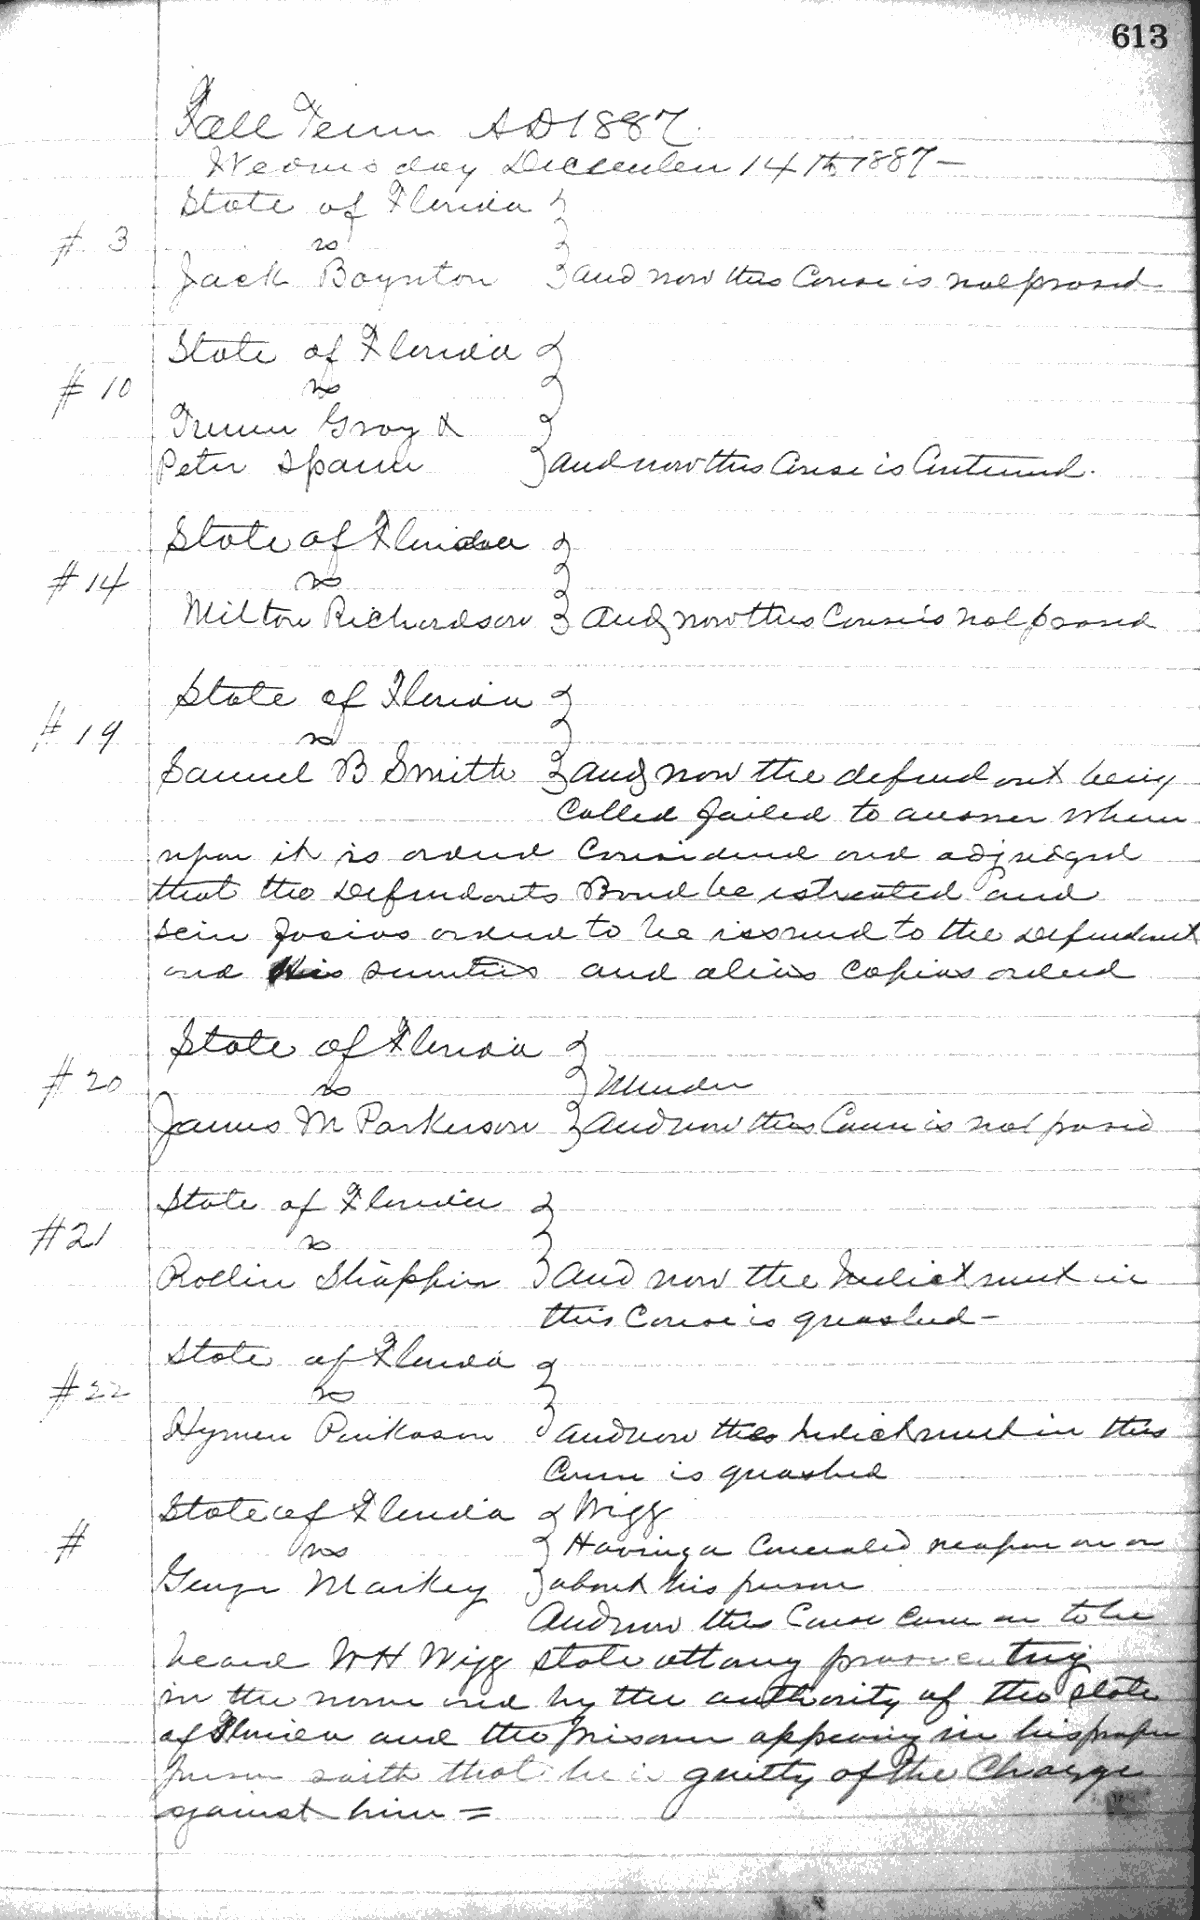 613
Fall Term AD 1887
Wednesday December 14th 1887 —
State of Florida }
# 3 vs }
Jack Boynton } and now this Cause is nolprosed
State of Florida }
# 10 vs }
Gray & }
Peter Spann } and now this Cause is Continued.
State of Florida }
# 14 vs }
Milton Richardson } and now this Cause is nolprosed
State of Florida }
# 19 vs }
Samuel B Smith } and now the defendant being
Called failed to answer where
upon it is ordered Considered and adjudged
that the Defendants Bond be estreated and
scire facias ordered to be issued to the Defendant
and his sureties and alias Capias ordered
State of Florida }
# 20 vs } Murder
James M Parkerson } and now this Cause is nolprosed
State of Florida }
# 21 vs }
Rollin } and now the Indictment in
this Cause is quashed —
State of Florida }
# 22 vs }
Hymen } and now the Indictment in this
Cause is quashed
State of Florida } Wigg
# vs } Having a Concealed weapon on or
George Markey } about his person
And now this Cause came on to be
heard WH Wigg state attorny prosecuting
in the name and by the authority of the State
of Florida and the prisoner appearing in his proper
person saith that he is guilty of the Charge
against him =